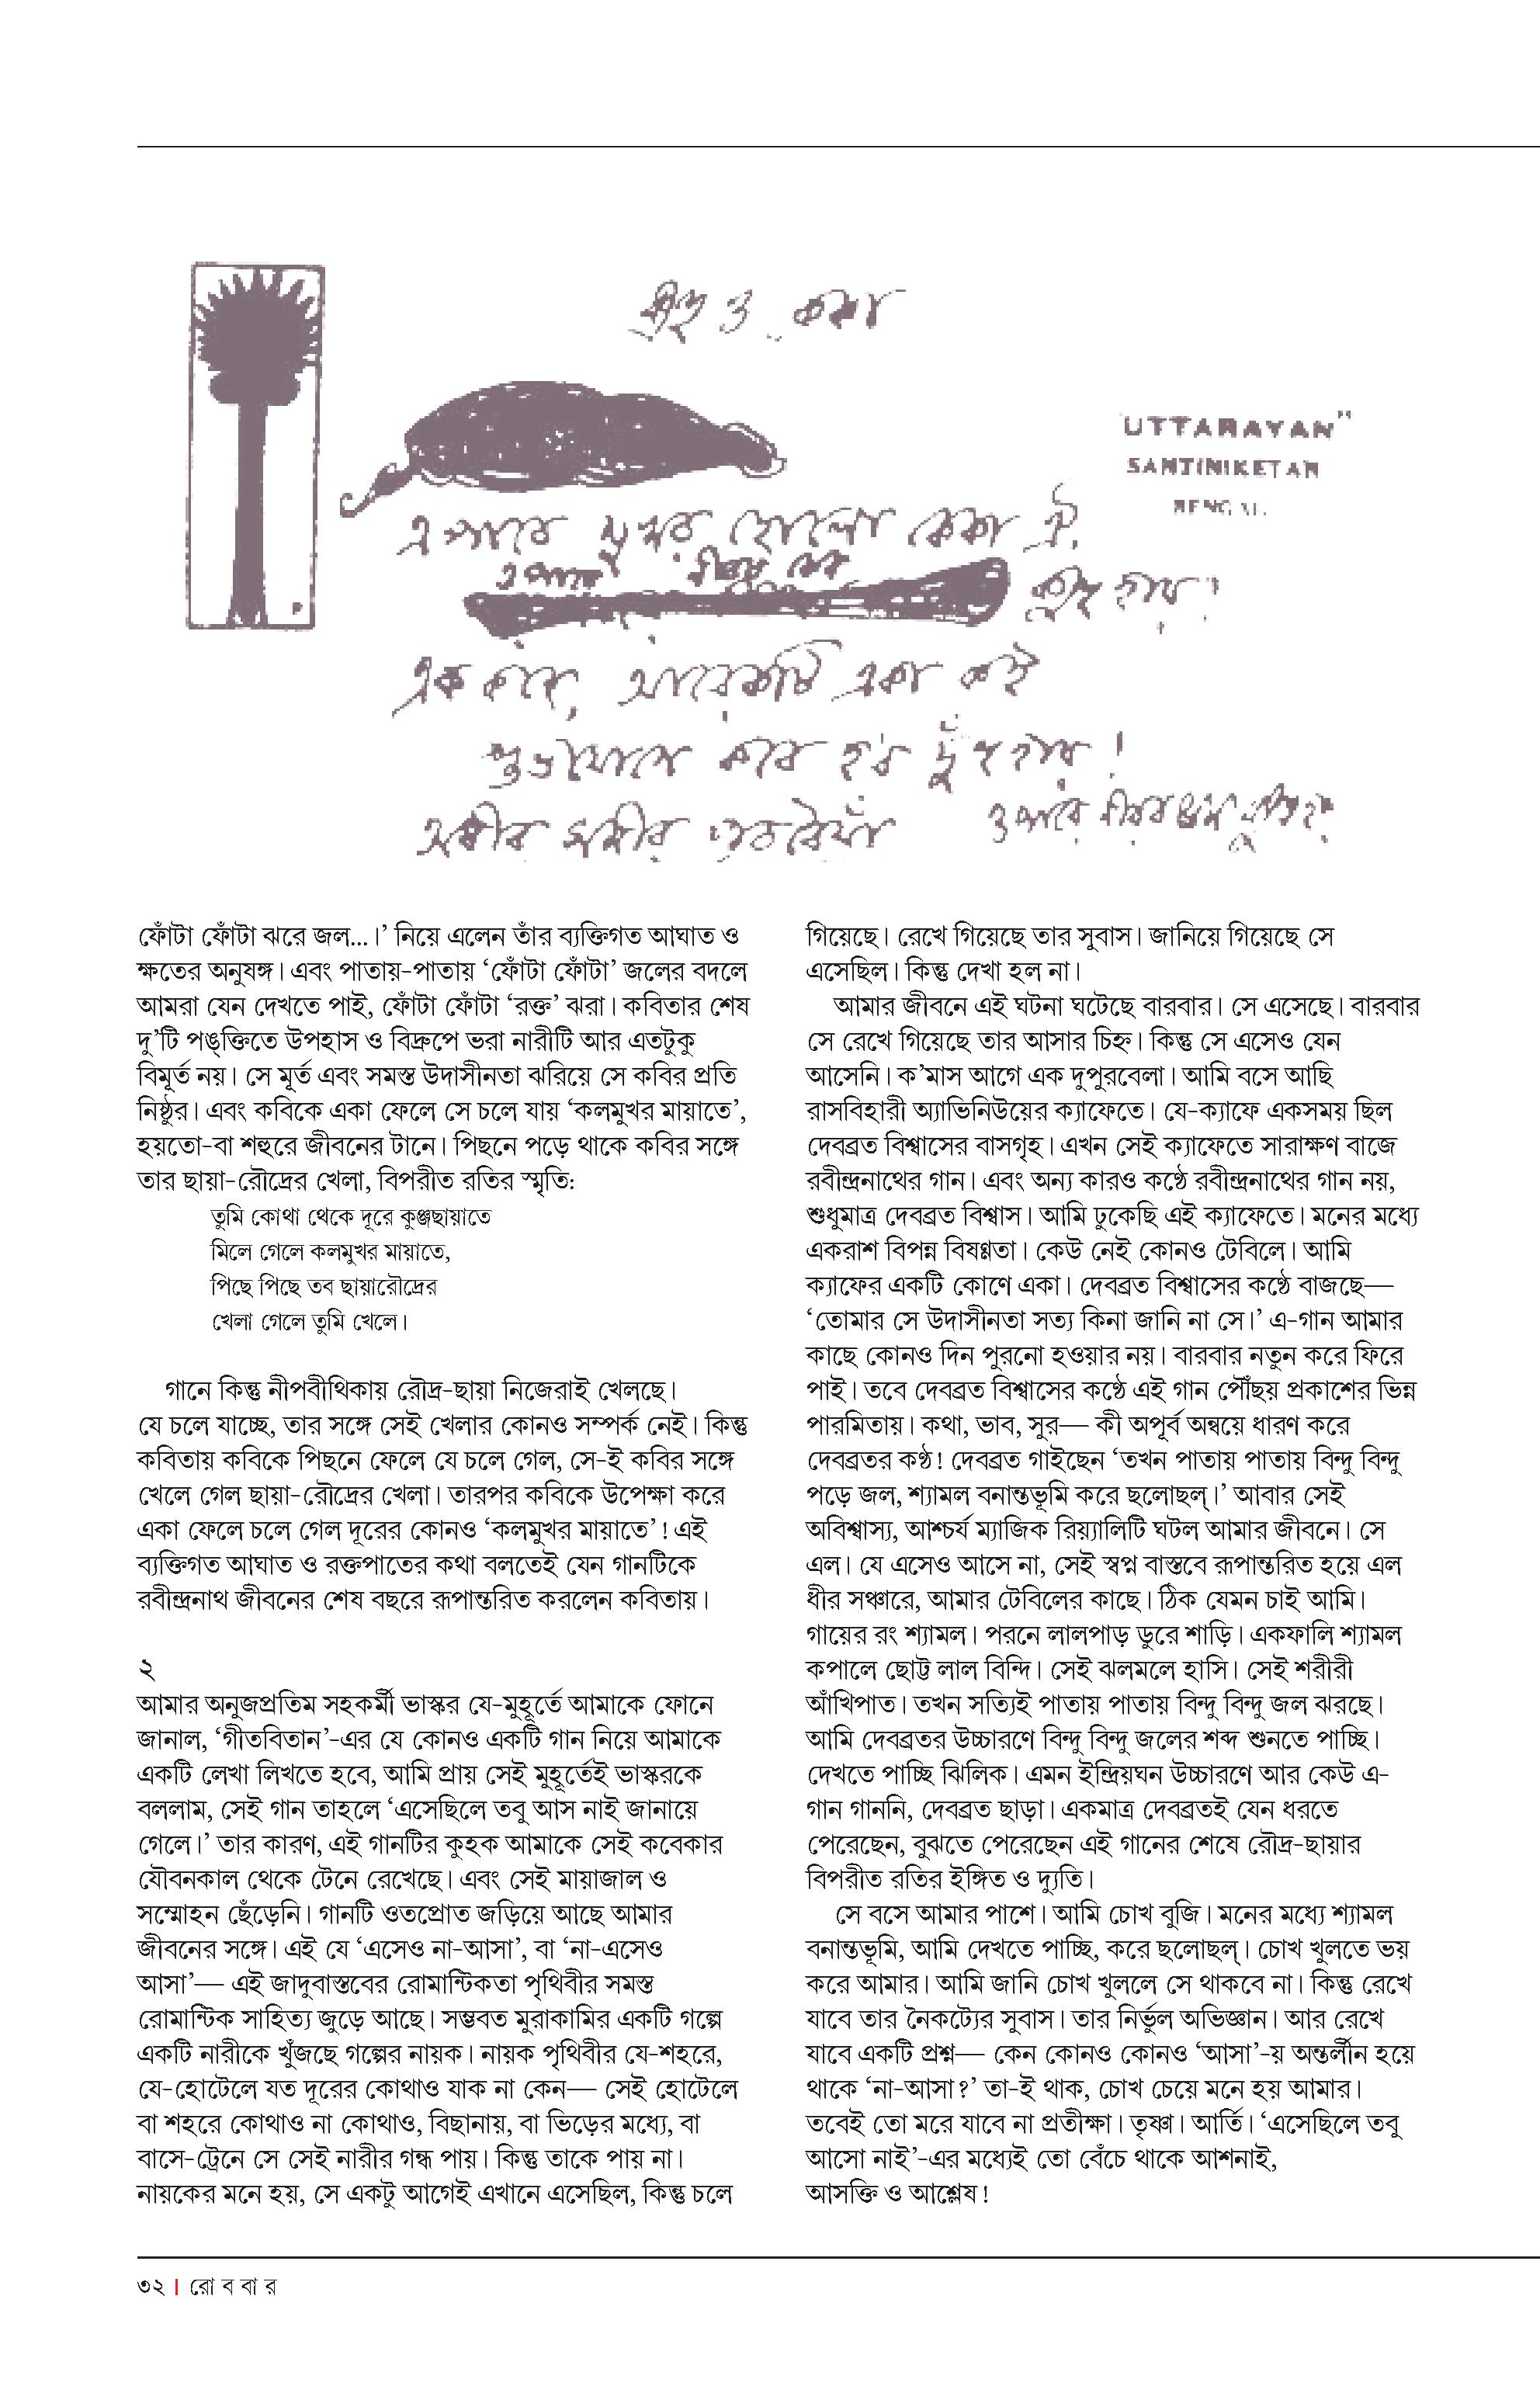 "UTTARAYAN"
SANTINIKETAN
BENGAL.
এপারে মুখর হোলো কেকা ঐ,
ফোঁটা ফোঁটা ঝরে জল...।’ নিয়ে এলেন তাঁর ব্যক্তিগত আঘাত ও
ক্ষতের অনুষঙ্গ। এবং পাতায়-পাতায় ‘ফোঁটা ফোঁটা’ জলের বদলে
আমরা যেন দেখতে পাই, ফোঁটা ফোঁটা ‘রক্ত’ ঝরা। কবিতার শেষ
দু’টি পঙ্‌ক্তিতে উপহাস ও বিদ্রুপে ভরা নারীটি আর এতটুকু
বিমূর্ত নয়। সে মূর্ত এবং সমস্ত উদাসীনতা ঝরিয়ে সে কবির প্রতি
নিষ্ঠুর। এবং কবিকে একা ফেলে সে চলে যায় ‘কলমুখর মায়াতে’,
হয়তো-বা শহুরে জীবনের টানে। পিছনে পড়ে থাকে কবির সঙ্গে
তার ছায়া-রৌদ্রের খেলা, বিপরীত রতির স্মৃতি:
তুমি কোথা থেকে দূরে কুঞ্জছায়াতে
মিলে গেলে কলমুখর মায়াতে,
পিছে পিছে তব ছায়ারৌদ্রের
খেলা গেলে তুমি খেলে।
গানে কিন্তু নীপবীথিকায় রৌদ্র-ছায়া নিজেরাই খেলছে।
যে চলে যাচ্ছে, তার সঙ্গে সেই খেলার কোনও সম্পর্ক নেই। কিন্তু
কবিতায় কবিকে পিছনে ফেলে যে চলে গেল, সে-ই কবির সঙ্গে
খেলে গেল ছায়া-রৌদ্রের খেলা। তারপর কবিকে উপেক্ষা করে
একা ফেলে চলে গেল দূরের কোনও ‘কলমুখর মায়াতে’! এই
ব্যক্তিগত আঘাত ও রক্তপাতের কথা বলতেই যেন গানটিকে
রবীন্দ্রনাথ জীবনের শেষ বছরে রূপান্তরিত করলেন কবিতায়।
২
আমার অনুজপ্রতিম সহকর্মী ভাস্কর যে-মুহূর্তে আমাকে ফোনে
জানাল, ‘গীতবিতান’-এর যে কোনও একটি গান নিয়ে আমাকে
একটি লেখা লিখতে হবে, আমি প্রায় সেই মুহূর্তেই ভাস্করকে
বললাম, সেই গান তাহলে ‘এসেছিলে তবু আস নাই জানায়ে
গেলে।’ তার কারণ, এই গানটির কুহক আমাকে সেই কবেকার
যৌবনকাল থেকে টেনে রেখেছে। এবং সেই মায়াজাল ও
সম্মোহন ছেঁড়েনি। গানটি ওতপ্রোত জড়িয়ে আছে আমার
জীবনের সঙ্গে। এই যে ‘এসেও না-আসা’, বা ‘না-এসেও
আসা’— এই জাদুবাস্তবের রোমান্টিকতা পৃথিবীর সমস্ত
রোমান্টিক সাহিত্য জুড়ে আছে। সম্ভবত মুরাকামির একটি গল্পে
একটি নারীকে খুঁজছে গল্পের নায়ক। নায়ক পৃথিবীর যে-শহরে,
যে-হোটেলে যত দূরের কোথাও যাক না কেন— সেই হোটেলে
বা শহরে কোথাও না কোথাও, বিছানায়, বা ভিড়ের মধ্যে, বা
বাসে-ট্রেনে সে সেই নারীর গন্ধ পায়। কিন্তু তাকে পায় না।
নায়কের মনে হয়, সে একটু আগেই এখানে এসেছিল, কিন্তু চলে
গিয়েছে। রেখে গিয়েছে তার সুবাস। জানিয়ে গিয়েছে সে
এসেছিল। কিন্তু দেখা হল না।
আমার জীবনে এই ঘটনা ঘটেছে বারবার। সে এসেছে। বারবার
সে রেখে গিয়েছে তার আসার চিহ্ন। কিন্তু সে এসেও যেন
আসেনি। ক’মাস আগে এক দুপুরবেলা। আমি বসে আছি
রাসবিহারী অ্যাভিনিউয়ের ক্যাফেতে। যে-ক্যাফে একসময় ছিল
দেবব্রত বিশ্বাসের বাসগৃহ। এখন সেই ক্যাফেতে সারাক্ষণ বাজে
রবীন্দ্রনাথের গান। এবং অন্য কারও কণ্ঠে রবীন্দ্রনাথের গান নয়,
শুধুমাত্র দেবব্রত বিশ্বাস। আমি ঢুকেছি এই ক্যাফেতে। মনের মধ্যে
একরাশ বিপন্ন বিষণ্ণতা। কেউ নেই কোনও টেবিলে। আমি
ক্যাফের একটি কোণে একা। দেবব্রত বিশ্বাসের কণ্ঠে বাজছে—
‘তোমার সে উদাসীনতা সত্য কিনা জানি না সে।’ এ-গান আমার
কাছে কোনও দিন পুরনো হওয়ার নয়। বারবার নতুন করে ফিরে
পাই। তবে দেবব্রত বিশ্বাসের কণ্ঠে এই গান পৌঁছয় প্রকাশের ভিন্ন
পারমিতায়। কথা, ভাব, সুর— কী অপূর্ব অন্বয়ে ধারণ করে
দেবব্রতর কণ্ঠ! দেবব্রত গাইছেন ‘তখন পাতায় পাতায় বিন্দু বিন্দু
পড়ে জল, শ্যামল বনান্তভূমি করে ছলোছল্‌।’ আবার সেই
অবিশ্বাস্য, আশ্চর্য ম্যাজিক রিয়্যালিটি ঘটল আমার জীবনে। সে
এল। যে এসেও আসে না, সেই স্বপ্ন বাস্তবে রূপান্তরিত হয়ে এল
ধীর সঞ্চারে, আমার টেবিলের কাছে। ঠিক যেমন চাই আমি।
গায়ের রং শ্যামল। পরনে লালপাড় ডুরে শাড়ি। একফালি শ্যামল
কপালে ছোট্ট লাল বিন্দি। সেই ঝলমলে হাসি। সেই শরীরী
আঁখিপাত। তখন সত্যিই পাতায় পাতায় বিন্দু বিন্দু জল ঝরছে।
আমি দেবব্রতর উচ্চারণে বিন্দু বিন্দু জলের শব্দ শুনতে পাচ্ছি।
দেখতে পাচ্ছি ঝিলিক। এমন ইন্দ্রিয়ঘন উচ্চারণে আর কেউ এ-
গান গাননি, দেবব্রত ছাড়া। একমাত্র দেবব্রতই যেন ধরতে
পেরেছেন, বুঝতে পেরেছেন এই গানের শেষে রৌদ্র-ছায়ার
বিপরীত রতির ইঙ্গিত ও দ্যুতি।
সে বসে আমার পাশে। আমি চোখ বুজি। মনের মধ্যে শ্যামল
বনান্তভূমি, আমি দেখতে পাচ্ছি, করে ছলোছল্‌। চোখ খুলতে ভয়
করে আমার। আমি জানি চোখ খুললে সে থাকবে না। কিন্তু রেখে
যাবে তার নৈকট্যের সুবাস। তার নির্ভুল অভিজ্ঞান। আর রেখে
যাবে একটি প্রশ্ন— কেন কোনও কোনও ‘আসা’-য় অন্তর্লীন হয়ে
থাকে ‘না-আসা?’ তা-ই থাক, চোখ চেয়ে মনে হয় আমার।
তবেই তো মরে যাবে না প্রতীক্ষা। তৃষ্ণা। আর্তি। ‘এসেছিলে তবু
আসো নাই’-এর মধ্যেই তো বেঁচে থাকে আশনাই,
আসক্তি ও আশ্লেষ!
৩২ | রোববার